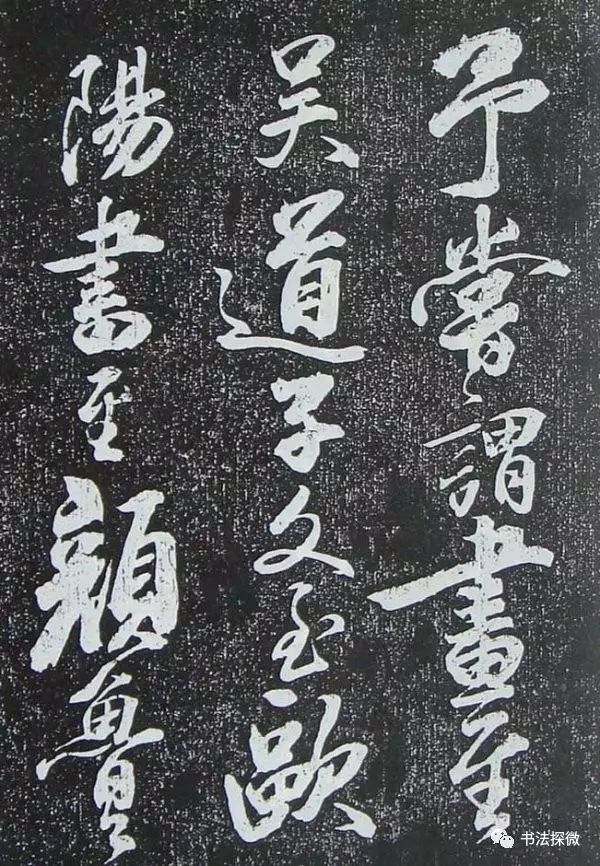 予嘗謂畫至
吳道子文至歐
陽書至顏魯
书法探微